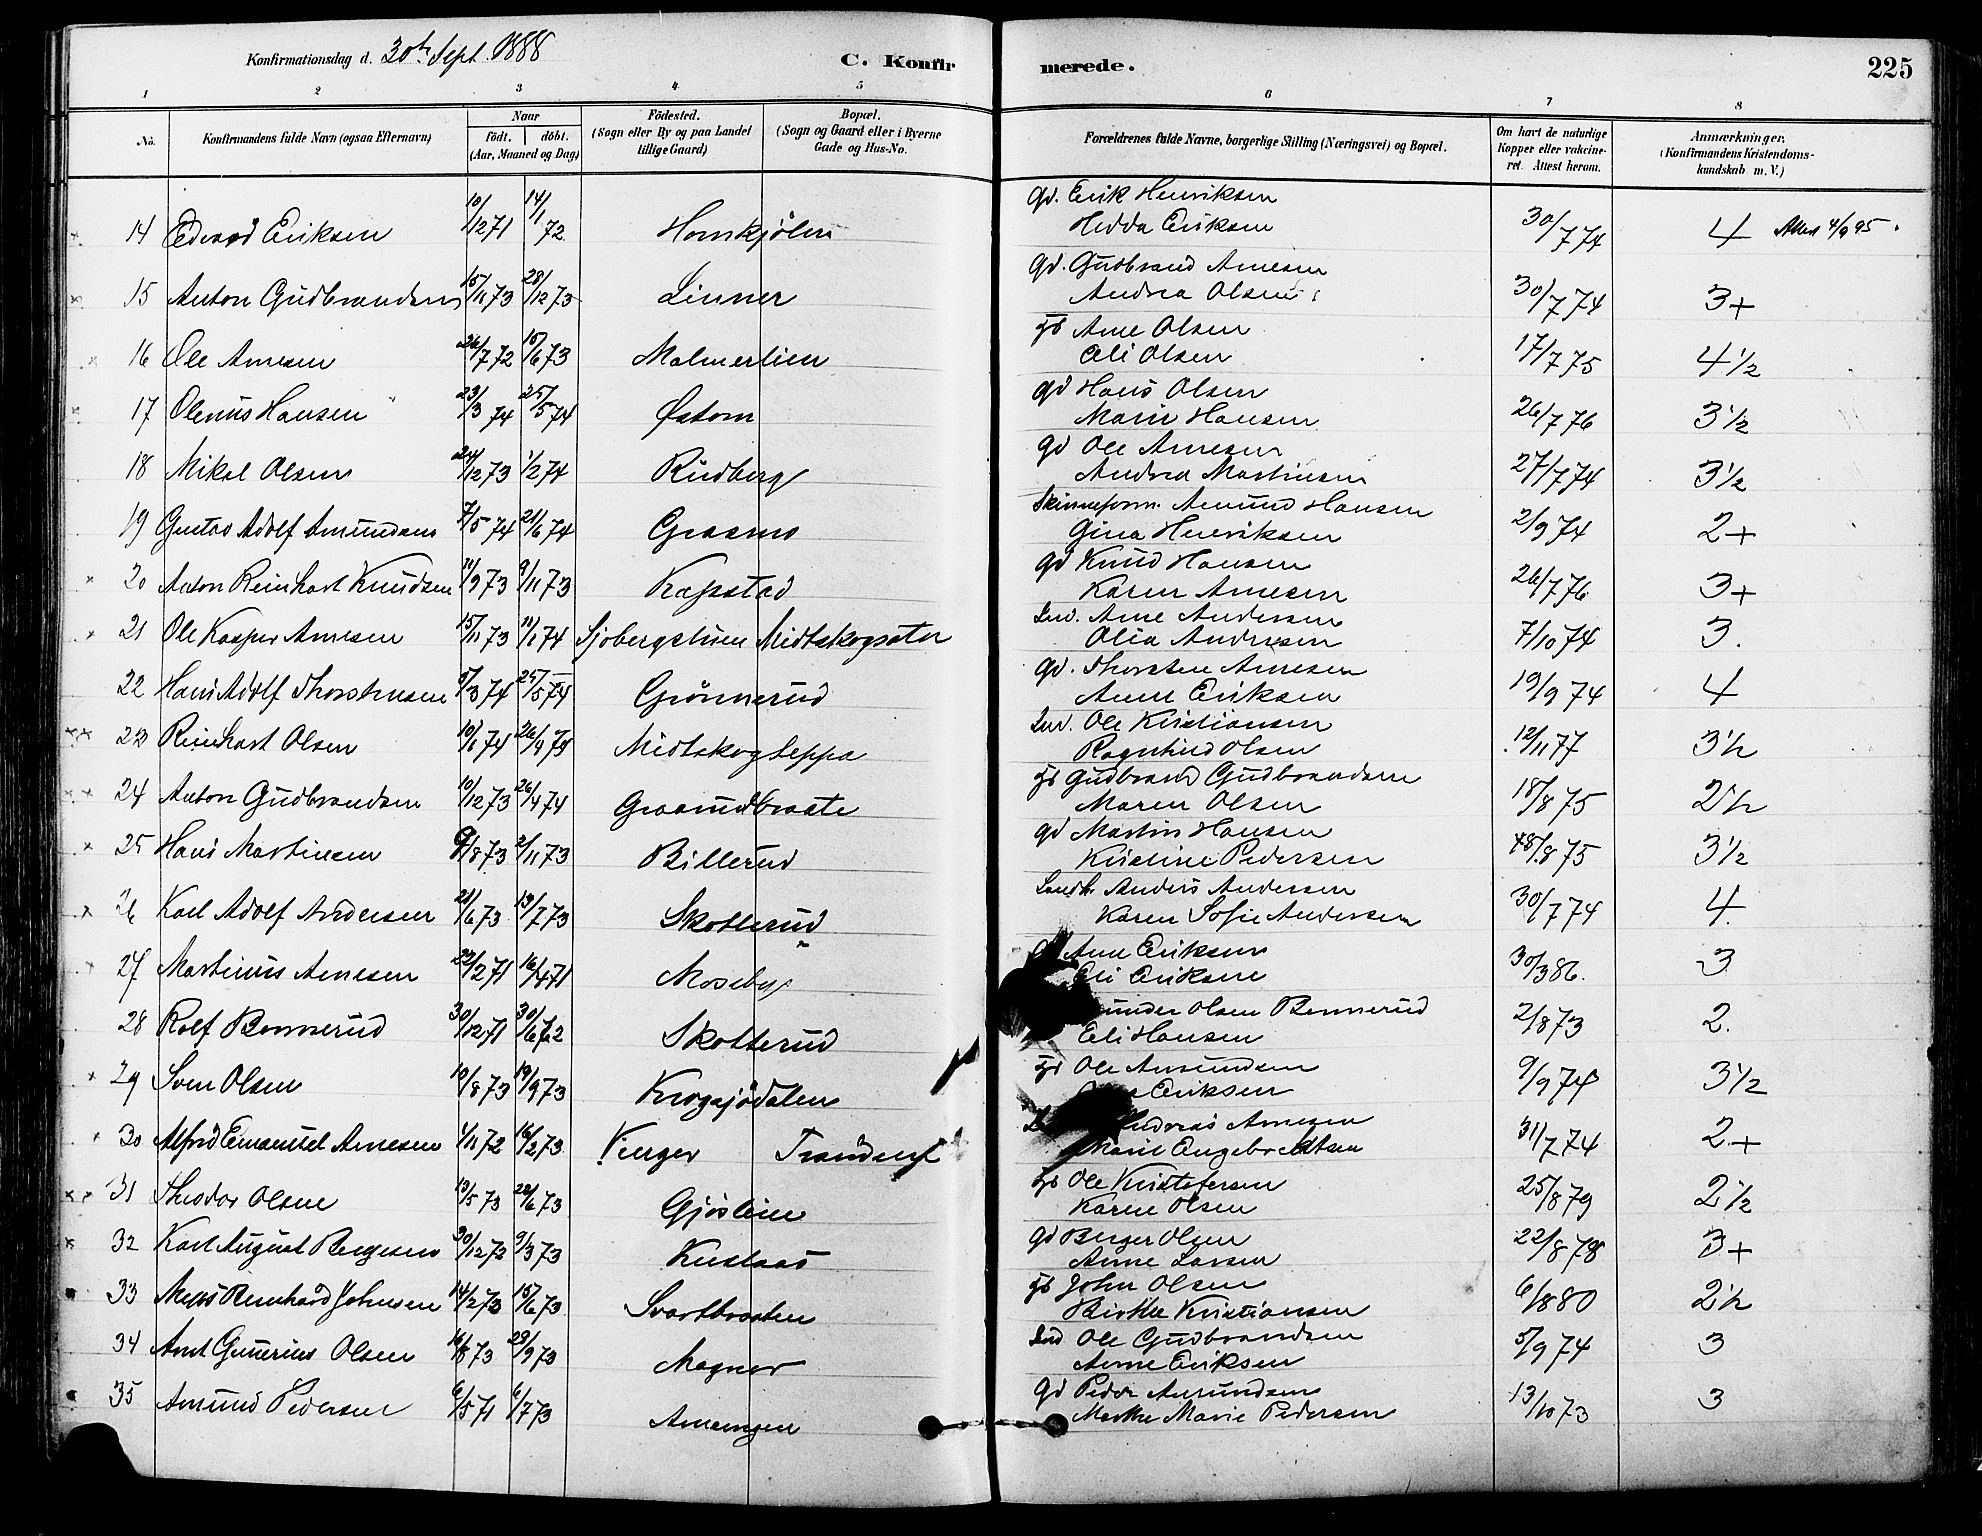 Konfirmationsdag d. 30te Sept. 1888
C. Konfirmerede.
225
1 2 3 4 5 6 7 8
No.
Konfirmandens fulde Navn (ogsaa Efternavn)
Naar
födt. döbt.
(Aar, Maaned og Dag)
Födested.
(Sogn eller By og paa Landet
tillige Gaard)
Bopæl.
(Sogn og Gaard eller i Byerne
Gade og Hus-No.
Forældrenes fulde Navne, borgerlige Stilling (Næringsvei) og Bopæl.
Om havt de naturlige
Kopper eller vakcine-
ret. Attest herom.
Anmærkninger,
(Konfirmandens Kristendoms-
kundskab m. V.)
14 Edvard Eriksen 10/12 71 14/1 72 Hornkjölen Gd. Erik Henriksen
Hedda Eriksen 30/7 74 4 Attest 4/9 95
15 Anton Gudbrandsen 15/11 73 28/12 73 Linner Gd. Gudbrand Arnesen
Andrea Olsen 30/7 74 3+
16 Ole Arnesen 26/7 72 15/6 73 Malmerlien Arne Olsen
Eli Olsen 17/7 75 4 1/2
17 Olenus Hansen 23/3 74 25/5 74 Østom Gd Hans Olsen
Marie Hansen 26/7 76 3 1/2
18 Mikal Olsen 24/12 73 1/2 74 Rudberg Gd Ole Arnesen
Andrea Martinsen 27/7 74 3 1/2
19 Gustav Adolf Amundsen 7/5 74 21/6 74 Grasmo Skinneform. Amund Hansen
Gina Henriksen 2/9 74 2+
20 Anton Reinhart Knudsen 11/9 73 9/11 73 Kapstad Gd Knud Hansen
Karen Arnesen 26/7 76 3+
21 Ole Kasper Arnesen 15/11 73 11/1 74 Sjobergstuen Midtskogsæter Ind. Arne Andersen
Olia Andersen 7/10 74 3.
22 Hans Adolf Thorstensen 5/3 74 25/5 74 Grönnerud Gd. Thorsten Arnesen
Anne Eriksen 19/9 74 4
23 Reinhart Olsen 10/1 74 26/4 74 Midtskogteppa Ind. Ole Kristiansen
Ragnhild Olsen 12/11 77 3 1/2
24 Anton Gudbrandsen 10/12 73 26/4 74 Graamdbraate Gudbrand Gudbrandsen
Maren Olsen 18/8 75 2 1/2
25 Hans Martinsen 9/8 73 2/11 73 Billerud Gd Martin Hansen
Kristine Pedersen 18/8 75 3 1/2
26 Karl Adolf Andersen 21/6 73 13/7 73 Skotterud Landh. Anders Andersen
Karen Sofie Andersen 30/7 74 4.
27 Martinus Arnesen 22/2 71 16/4 71 Moseby Arne Eriksen
Eli Eriksen 30/3 86. 3
28 Rolf Bonnerud 30/12 71 30/6 72 Skotterud Olsen Bonnerud
Eli Hansen 2/8 73 2.
29 Sven Olsen 10/8 73 19/9 73 Krogsjödalen Ole Amundsen
Eriksen 9/9 74 3 1/2
30 Alfred Emanuel Arnesen 1/11 72 16/2 73 Vinger Andreas Arnesen
Marie Engebretsen 31/7 74 2+
31 Theodor Olsen 13/5 73 22/6 73 Gjöslien Ole Kristofersen
Karen Olsen 25/8 79 2 1/2
32 Karl August Bergersen 30/12 72 9/3 73 Kustaas Gd Berger Olsen
Anne Larsen 22/8 78 3+
33 Reinhard Johnsen 14/2 73 15/6 73 Svartbraaten John Olsen
Birthe Kristiansen 6/8 80 2 1/2
34 Arnt Gunerius Olsen 16/8 73 29/9 73 Magnor Ind Ole Gudbrandsen
Anne Eriksen 5/9 74 3
35 Amund Pedersen 6/5 71 6/7 73 Amsengen Gd Peder Amundsen
Marthe Marie Pedersen 13/10 73 3